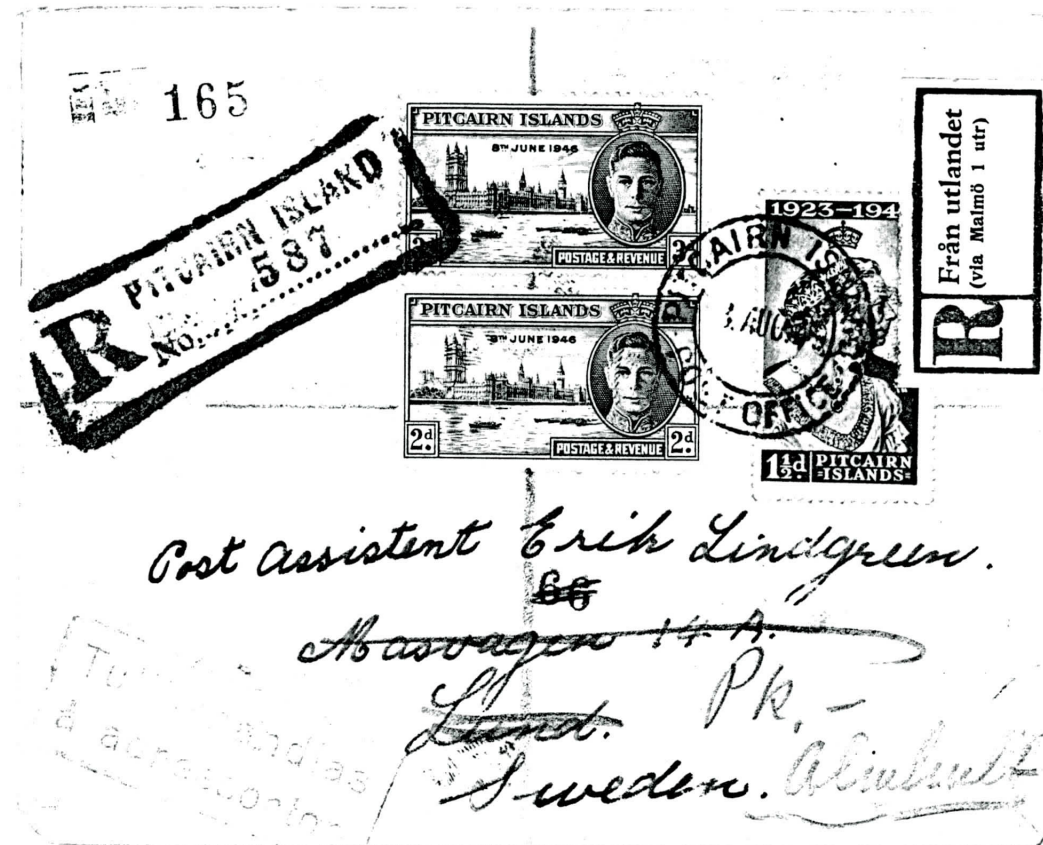 165
PITCAIRN ISLAND
R No. 587
PITCAIRN ISLANDS
8TH JUNE 1946
POSTAGE & REVENUE
PITCAIRN ISLANDS
8TH JUNE 1946
2d POSTAGE & REVENUE 2d
1923-194
1½d PITCAIRN ISLANDS
PITCAIRN ISLAND
AUG
POST OFFICE
R Från utlandet
(via Malmö 1 utr)
Post Assistent Erik Lindgreen.
66
Masvagen 14 A.
Lund.
Pk,-
Sweden.